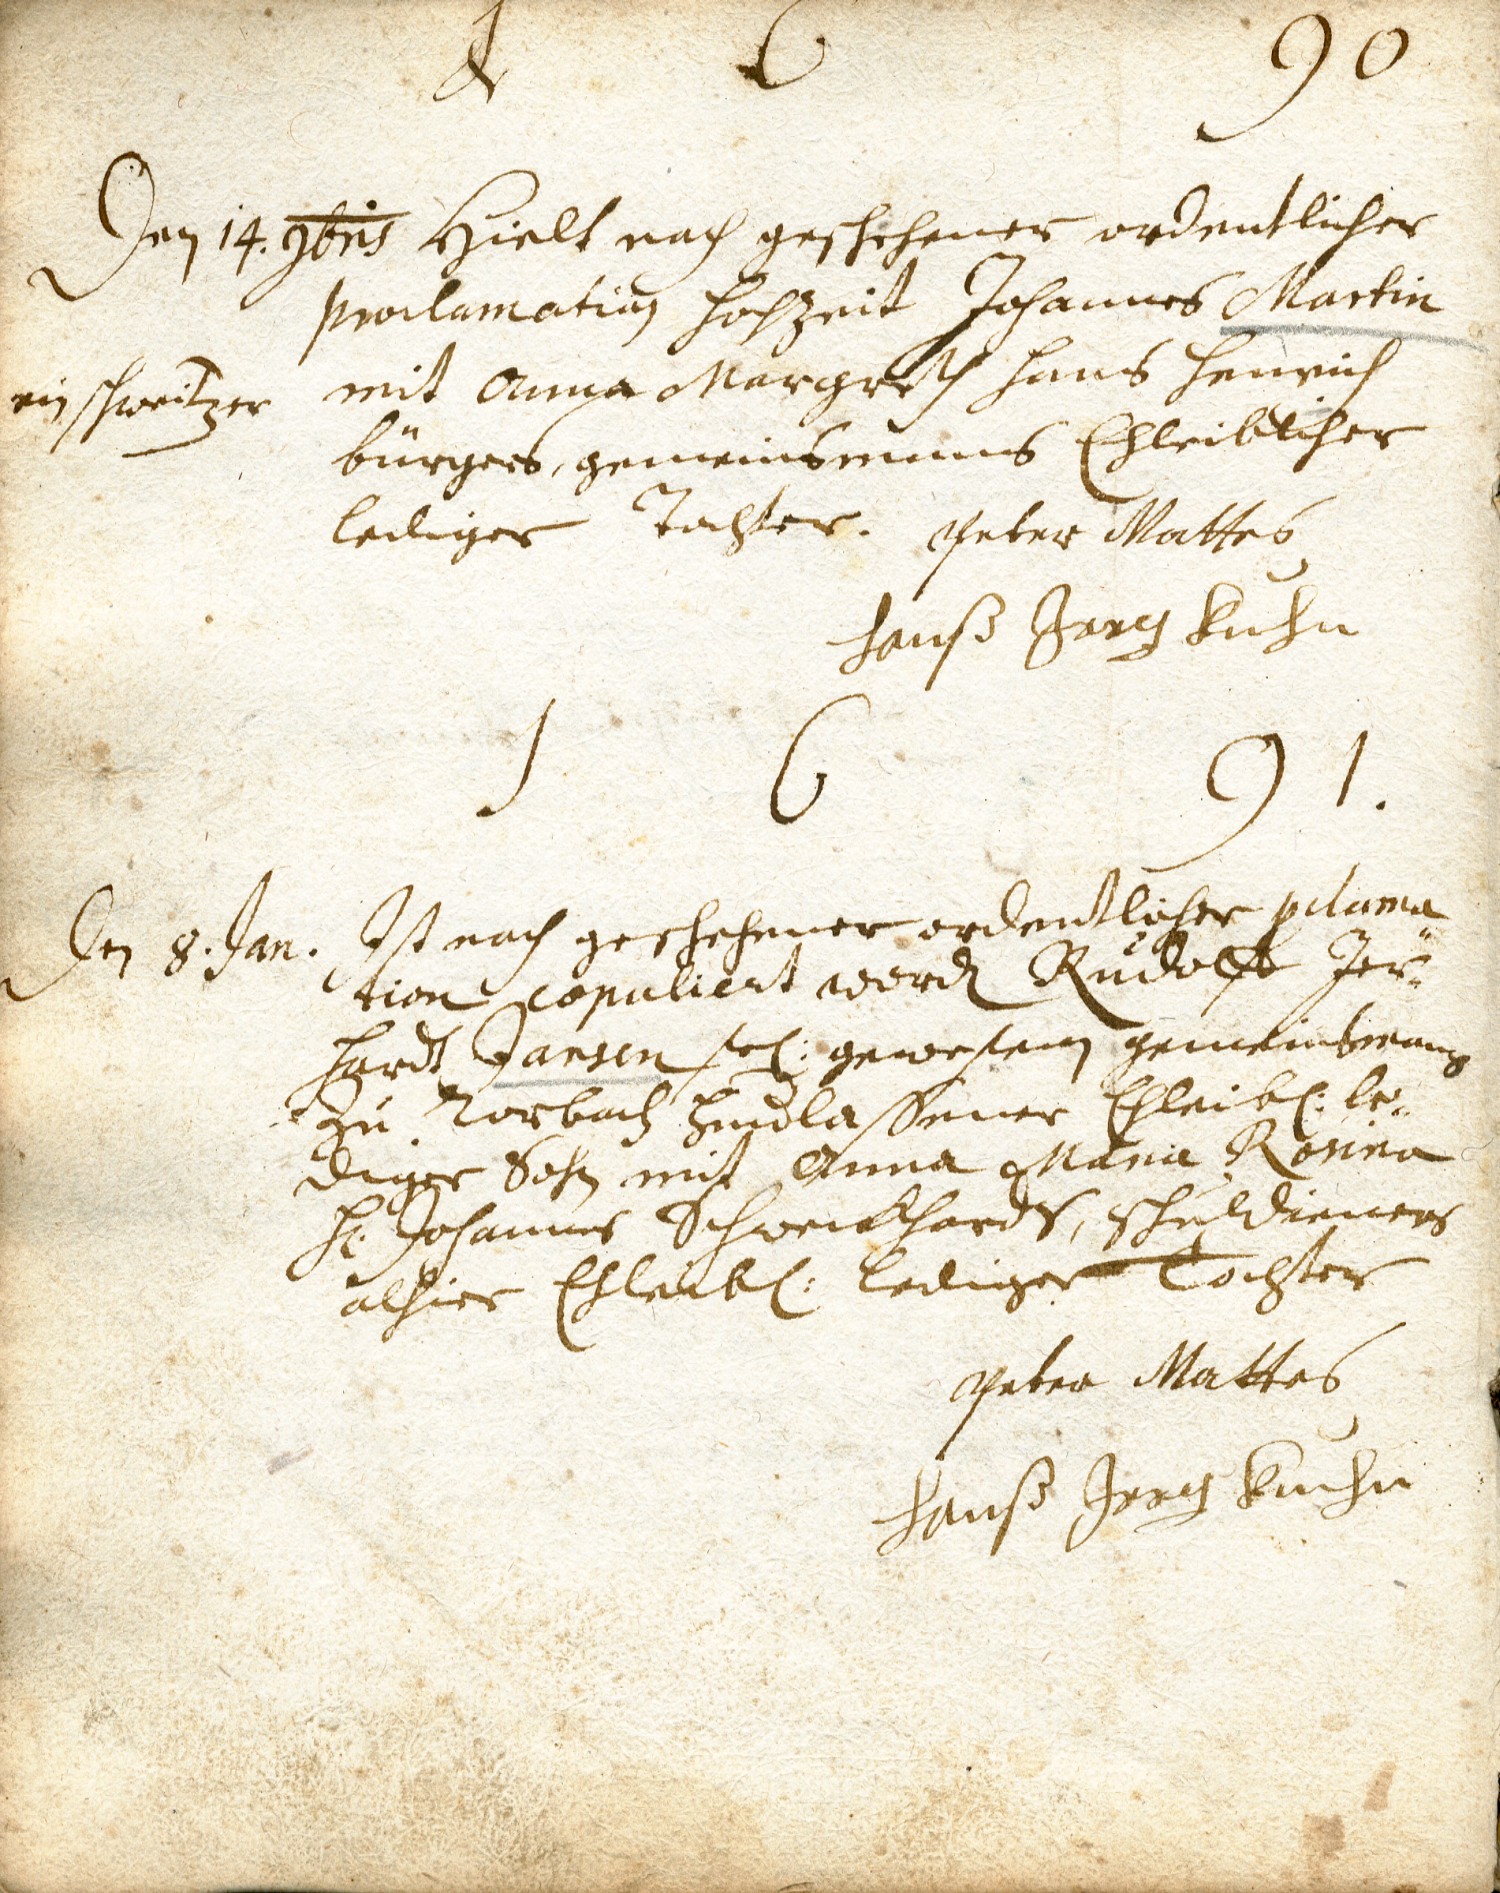 1 6 90
Den 14. 9bris Hielt nach geschehener ordentlicher
proclamation Hochzeit Johannes Martin
ein schweitzer
mit Anna Margreth Hans Henrich
bürgers, gemeinsmans Ehleiblicher
lediger Tochter. Peter Mattes
Hanß Jerg Kuhn
1 6 91.
Den 8. Jan. Ist nach geschehener ordentlicher pclama
tion copuliert word Rudolff Ger-
hardt Jansen sel: gewesenen gemeinsmans
zu Rorbach hindlassener Ehleibl: le-
diger Sohn mit Anna Maria Rosina
H. Johannes Schweickhards, schuldieners
alhier Ehleibl: lediger Tochter
Peter Mattes
Hanß Jerg Kuhn